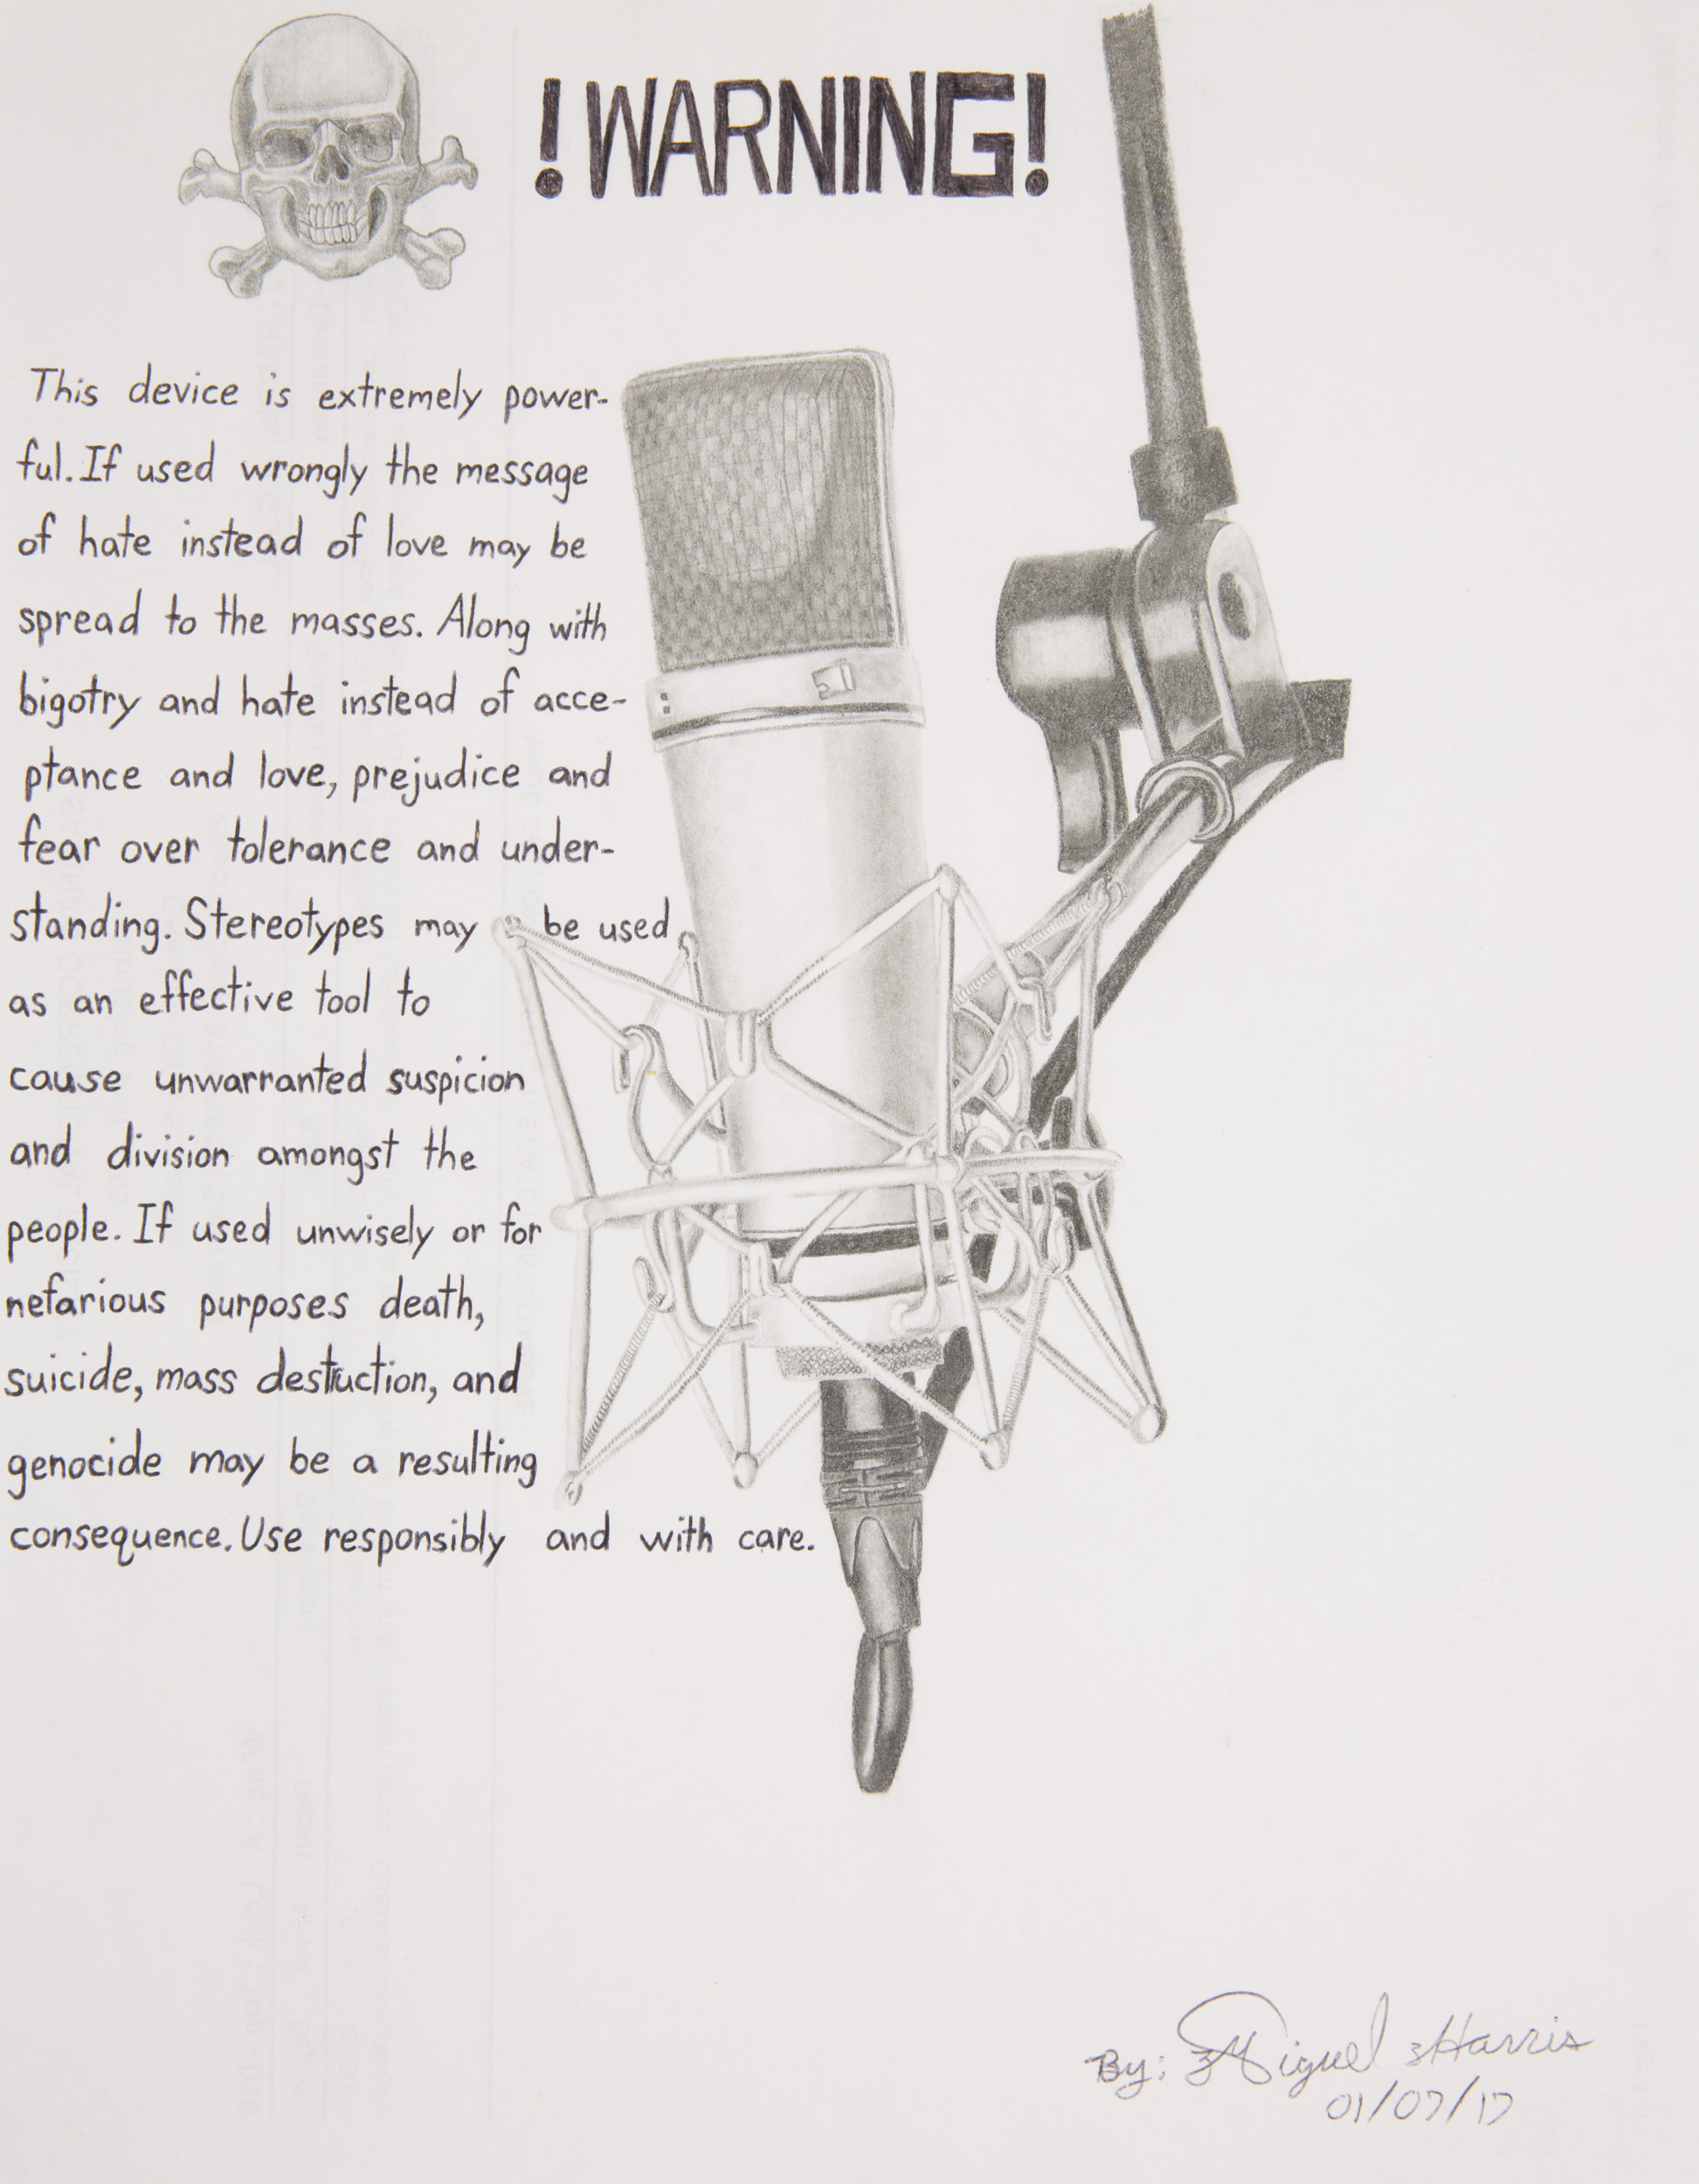 ! WARNING!
This device is extremely power-
ful. If used wrongly the message
of hate instead of love may be
spread to the masses. Along with
bigotry and hate instead of acce-
ptance and love, prejudice and
fear over tolerance and under-
standing. Stereotypes may be used
as an effective tool to
cause unwarranted suspicion
and division amongst the
people. If used unwisely or for
nefarious purposes death,
suicide, mass destuction, and
genocide may be a resulting
consequence. Use responsibly and with care.
By: Miguel Harris
01/07/17